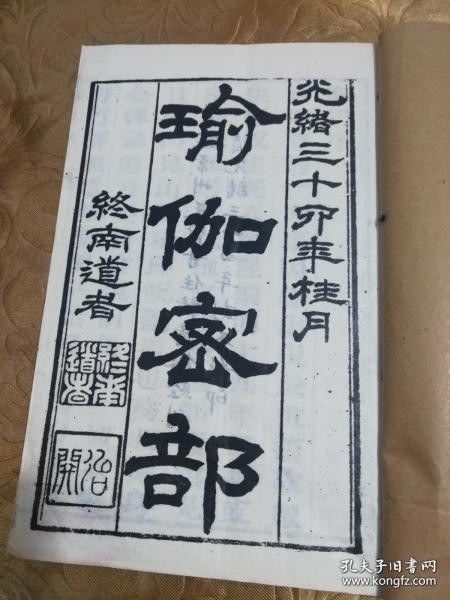 光緒三十卯年桂月
瑜伽密部
終南道者
終南
道者
冶開
孔夫子旧书网
www.kongfz.com